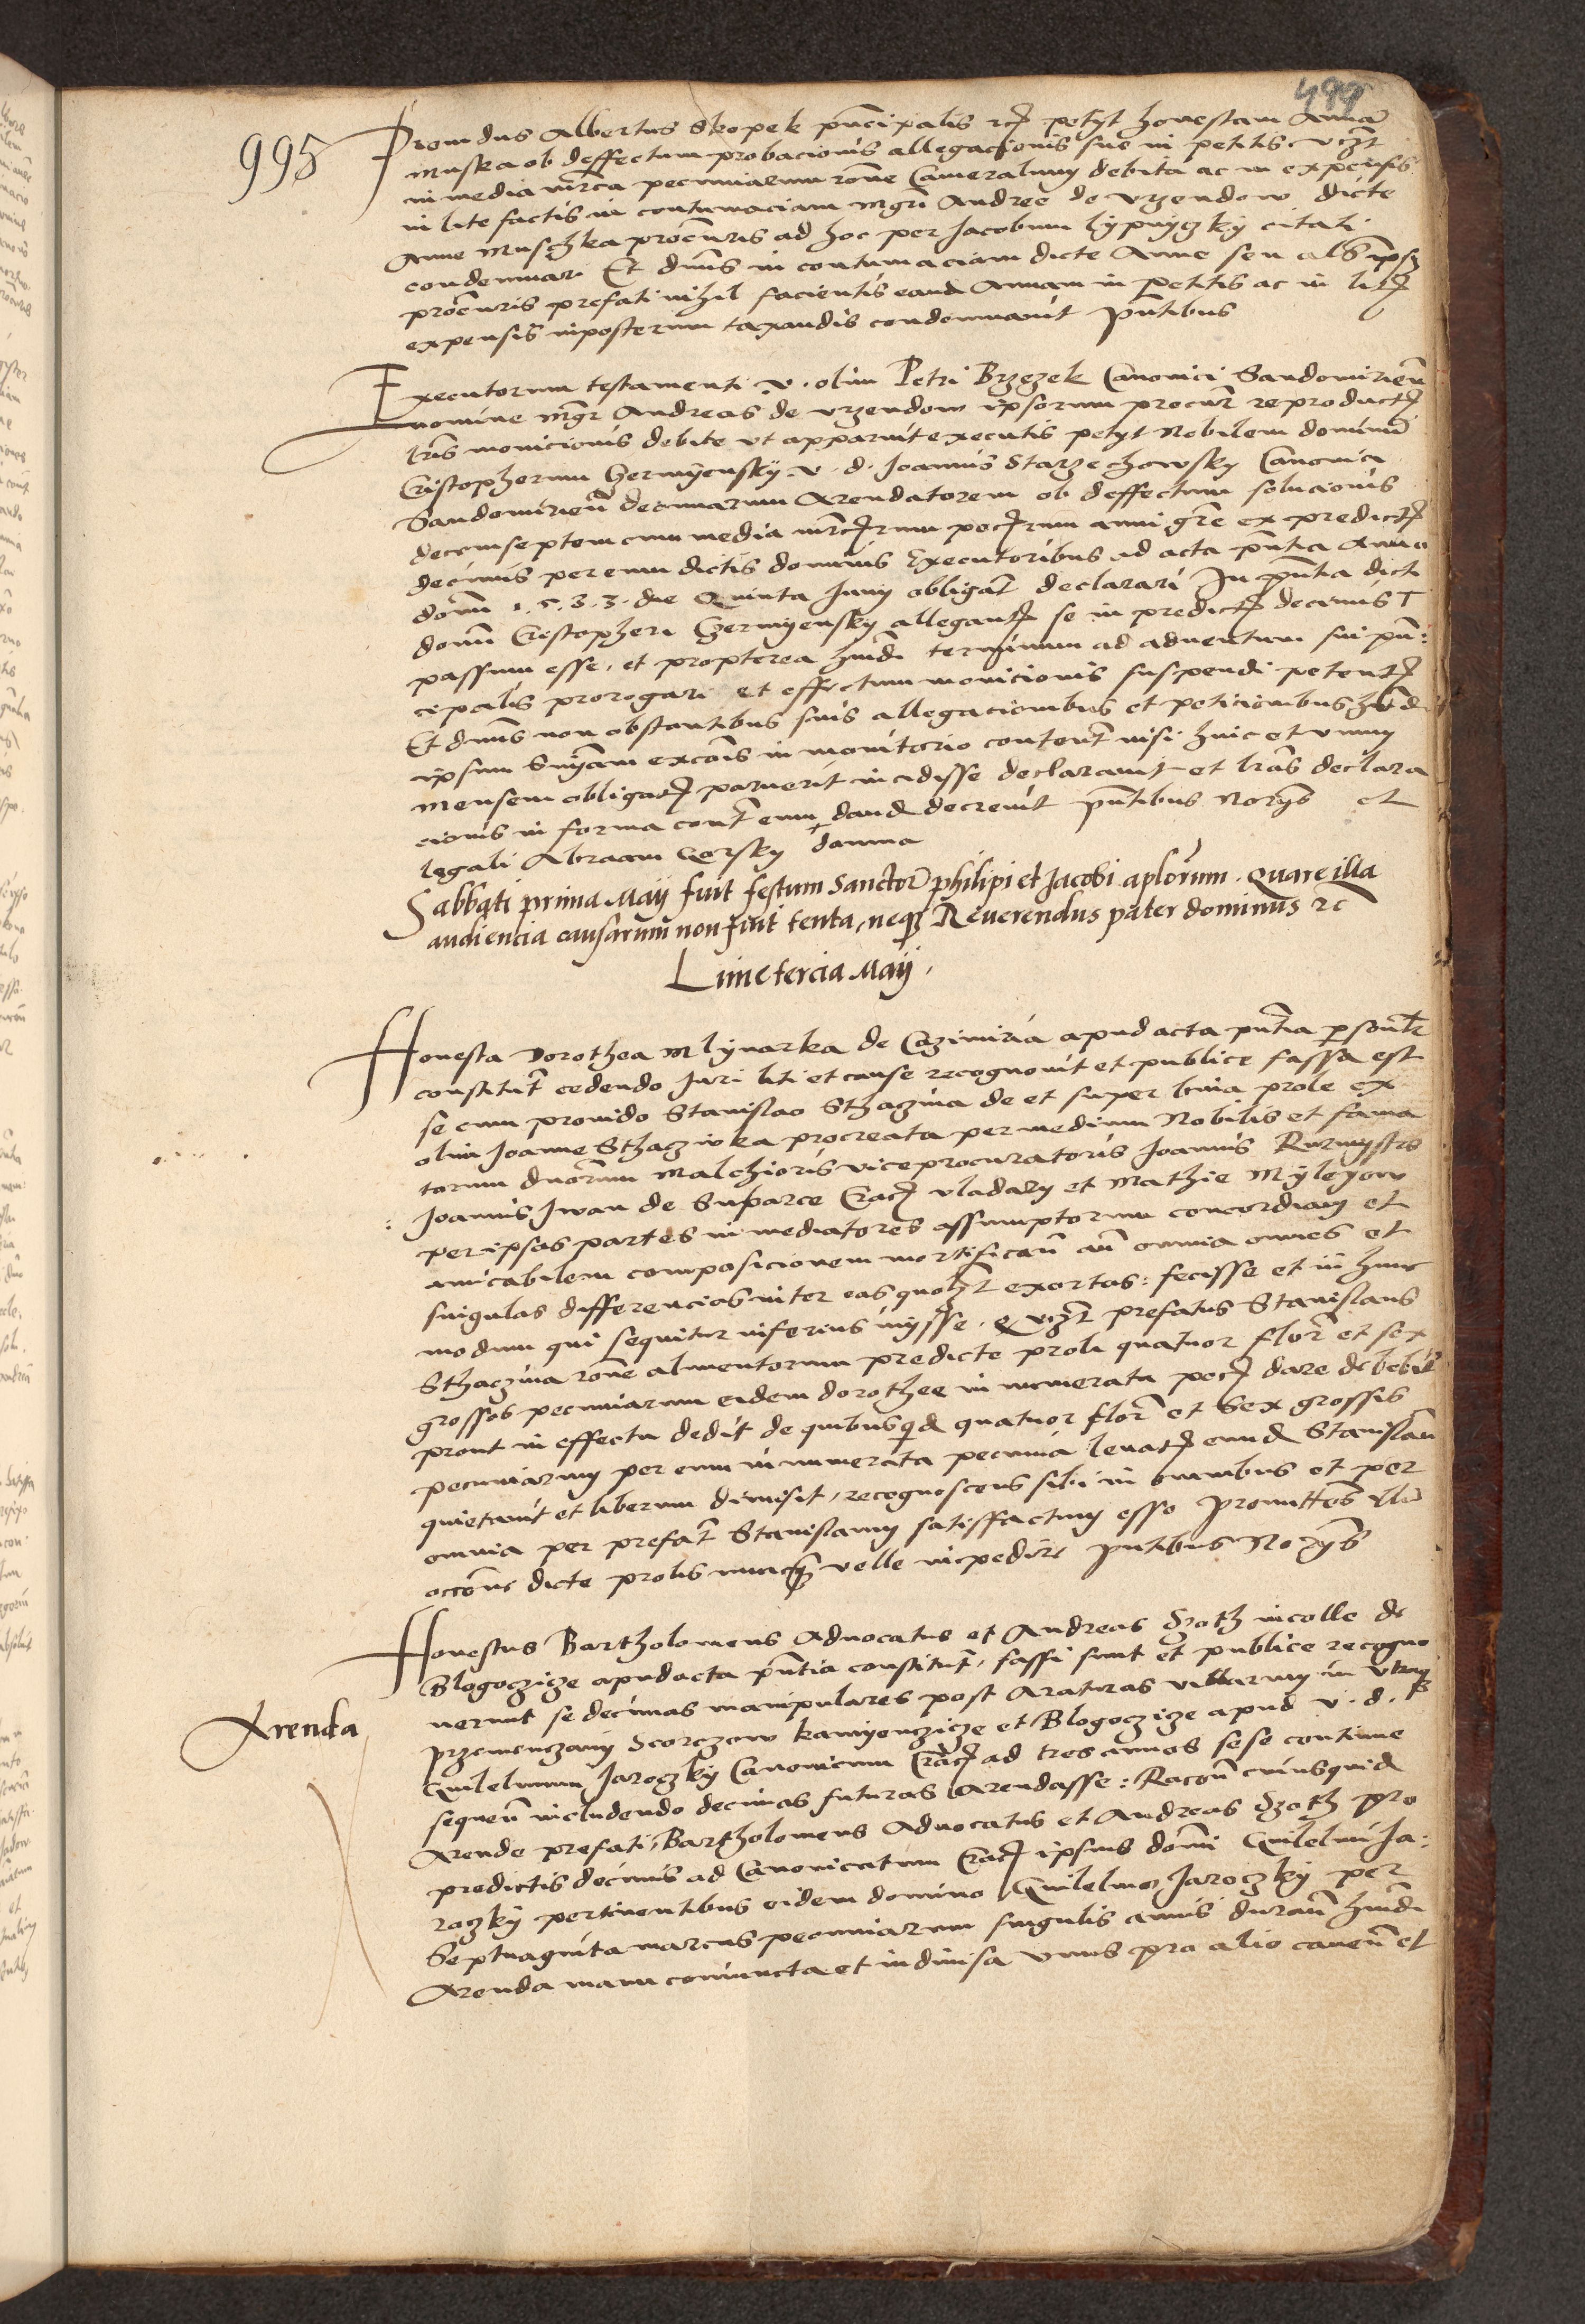 499
995
Providus Albertus Skopek principalis rc petyt honestam Annam
Muska ob deffectum probacionis allegacionis sue in petitis vczt
in media mrca pecuniarum rone Cameralium debita ac in expensis
in lite factis in contumaciam mgri Andree de Vrzendow dicte
Anne Muschka procuris ad hoc per Jacobum Lypnyczky citati
condemnari Et dnus in contumaciam dicte Anne seu als ipsius
procuris prefati nihil facientis eand Annam in petitis ac in litis
expensis inposterum taxandis condemnavit pntibus
Executorum testamenti v. olim Petri Brzezek Canonici Sandomirien
nomine mgr Andreas de Vrzendow ipsorum procur reproductis
lris monicionis debite vt apparuit executis petyt Nobilem dominum
Cristopherum Czermyensky v. d. Joannis Starzechowsky Canonici
Sandomirien decimarum Arendatorem ob deffectum solucionis
decemseptem cum media mrcarum pecrum anni gre ex predictis
decimis per eum dictis dominis Executoribus ad acta pntia Anno
domi 1.5.3.3. die Quinta Juny obligat declarari In pntia dicti
domi Cristopheri Czermyensky allegantis se in predictis decimis
passum esse, et propterea hmdi terminum ad adventum sui prin:
cipalis prorogari et effectum monicionis suspendi petentis
Et dnus non obstantibus suis allegacionibus et peticionibus hmdi
ipsum Snyam excois in monitorio content nisi huic et vnum
mensem obligacis paruerit incidisse declaravit et lras declara
cionis in forma cont eum dand decrevit pntibus Norys et
legali Abraam Gorsky
Sabbati prima Maij fuit festum Sanctor philipi et Jacobi aplorum. Quare illa
audiencia causarum non fuit tenta, neque Reverendus pater dominus rc
Lune tercia Maij,
Honesta Dorothea Mlynarka de Cazimiria apud acta pntia psonlr
constitut cedendo Juri liti et cause recognovit et publice fassa est
se cum provido Stanislao Sthaczina de et super lmia prole ex
olim Joanne Sthaczinka procreata per medium Nobilis et fama
torum dnorum Malchioris viceprocuratoris Joannis Rurmystrs
Joannis Jwan de Suparce Crac vladary et Mathie Myleyow
per ipsas partes in mediatores assumptorum concordiam et
amicabilem composicionem mortifican an omnia omnes et
singulas differencias inter eas quolzt exortas: fecisse et in hunc
modum qui sequitur inferius inysse. Q vczt prefatus Stanislaus
Sthaczina rone alimentorum predicte proli quatuor flor et sex
grossos pecuniarum eidem dorothee in numerata pec dare debebit
prout in effectu dedit de quibusquid quatuor flor et Sex grossis
pecuniarum per eum in numerata pecunia levatis eund Stanislau
quietavit et liberum dimisit, recognoscens sibi in omnibus et per
omnia per prefat Stanislaum satisffactum esse promittens ylu
occone dicte prolis nunquam velle inpedire pntibus Norys
Honestus Bartholomeus Advocatus et Andreas Szoth incolle de
Blogoczicze apud acta pntia constitut, fassi sunt et publice recogno
verunt se decimas manipulares post Araturas villarum in vtraq
Arenda
przemenczany Scorczow kamyenczicze et Blogoczicze apud v. d.
Guilelmum Jaroczky Canonicum Crac ad tres annos sese continue
sequen includendo decimas futuras Arendasse: Racon cuiusquid
Arende prefati Bartholomeus Advocatus et Andreas Szoth pro
predictis decimis ad Canonicatum Crac ipsius domi Guilelmi Ja:
roczky pertinentibus eidem domino Guilelmo Jaroczky per
Septuaginta marcas pecuniarum singulis annis duran hmdi
Arenda manu coniuncta et indivisa vnus pro alio caven et